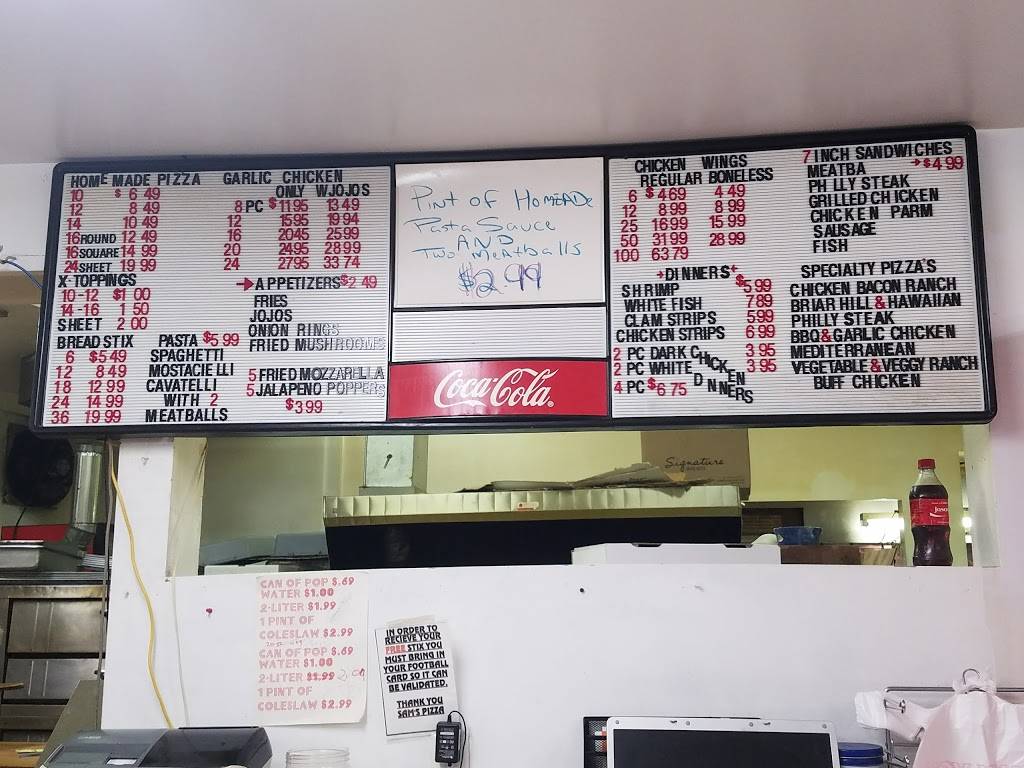 HOME MADE PIZZA
10 $6 49
12 8 49
14 10 49
16 ROUND 12 49
16 SQUARE 14 99
24 SHEET 19 99
X TOPPINGS
10-12 $1 00
14-16 1 50
SHEET 2 00
BREAD STIX
6 $5 49
12 8 49
18 12 99
24 14 99
36 19 99
GARLIC CHICKEN
ONLY W JOJOS
8 PC $11 95 13 49
12 15 95 19 94
16 20 45 25 99
20 24 95 28 99
24 27 95 33 74
APPETIZERS $2 49
FRIES
JOJOS
ONION RINGS
FRIED MUSHROOMS
PASTA $5 99
SPAGHETTI
MOSTACIELLI
CAVATELLI
WITH 2
MEATBALLS
5 FRIED MOZZARELLA
5 JALAPENO POPPERS
$3 99
Pint of Homeade
Pasta Sauce
AND
Two Meatballs
$2.99
Coca-Cola
CHICKEN WINGS
REGULAR BONELESS
6 $4 69 4 49
12 8 99 8 99
25 16 99 15 99
50 31 99 28 99
100 63 79
7 INCH SANDWICHES
$4 99
MEATBA
PHILLY STEAK
GRILLED CHICKEN
CHICKEN PARM
SAUSAGE
FISH
DINNERS
SHRIMP $5 99
WHITE FISH 7 89
CLAM STRIPS 5 99
CHICKEN STRIPS 6 99
2 PC DARK CHICKEN 3 95
2 PC WHITE 3 95
4 PC $6 75 DINNERS
SPECIALTY PIZZA'S
CHICKEN BACON RANCH
BRIAR HILL & HAWAIIAN
PHILLY STEAK
BBQ & GARLIC CHICKEN
MEDITERRANEAN
VEGETABLE & VEGGY RANCH
BUFF CHICKEN
Signature
CAN OF POP $.69
WATER $1.00
2-LITER $1.99
1 PINT OF
COLESLAW $2.99
CAN OF POP $.69
WATER $1.00
2-LITER $1.99
1 PINT OF
COLESLAW $2.99
IN ORDER TO
RECIEVE YOUR
FREE STIX YOU
MUST BRING IN
YOUR FOOTBALL
CARD SO IT CAN
BE VALIDATED.
THANK YOU
SAM'S PIZZA